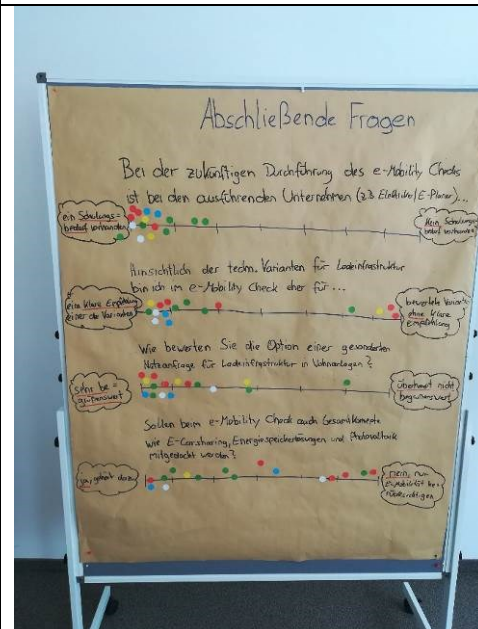 Abschließende Fragen
Bei der zukünftigen Durchführung des e-Mobility Checks
ist bei den ausführenden Unternehmen (z.B. Elektriker/E-Planer)...
ein Schulungs=
bedarf vorhanden
kein Schulungs=
bedarf vorhanden
Hinsichtlich der techn. Varianten für Ladeinfrastruktur
bin ich im e-Mobility Check eher für...
eine klare Empfehlung
einer der Varianten
bewertete Variante
ohne klare
Empfehlung
Wie bewerten Sie die Option einer gesonderten
Netzanfrage für Ladeinfrastruktur in Wohnanlagen?
sehr be=
grüßenswert
überhaupt nicht
begrüßenswert
Sollen beim e-Mobility Check auch Gesamtkonzepte
wie E-Carsharing, Energiespeicherlösungen und Photovoltaik
mitgedacht werden?
ja, gehört dazu
nein, nur
E-Mobilität be=
rücksichtigen